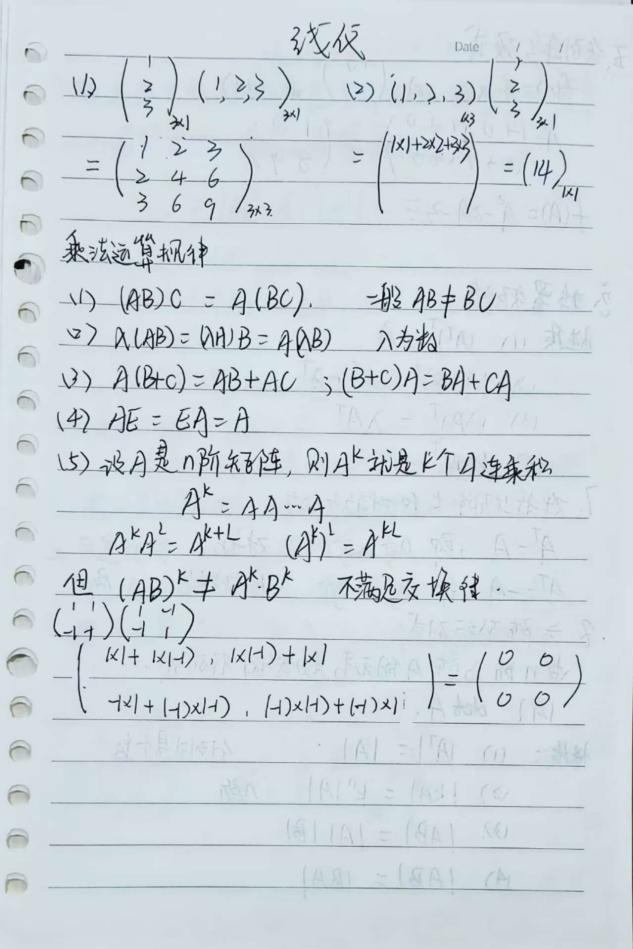 线代
Date / /
(1) (1 2 3)3×1 (1, 2, 3)3×1 (2) (1, 2, 3)1×3 (1 2 3)3×1
= (1 2 3
2 4 6
3 6 9)3×3 = (1×1+2×2+3×3) = (14)1×1
乘法运算规律
(1) (AB)C = A(BC). 一般 AB≠BC
(2) λ(AB)=(λA)B=A(λB) λ为数
(3) A(B+C)=AB+AC ; (B+C)A=BA+CA
(4) AE=EA=A
(5) 设A是n阶矩阵, 则A^k就是k个A连乘积
A^k = AA…A
A^k A^L = A^{k+L} (A^k)^L = A^{kL}
但 (AB)^k ≠ A^k·B^k 不满足交换律.
(1 1
-1 -1)(1 -1
-1 1)
(1×1+1×(-1), 1×(-1)+1×1
-1×1+(-1)×(-1), (-1)×(-1)+(-1)×1) = (0 0
0 0)